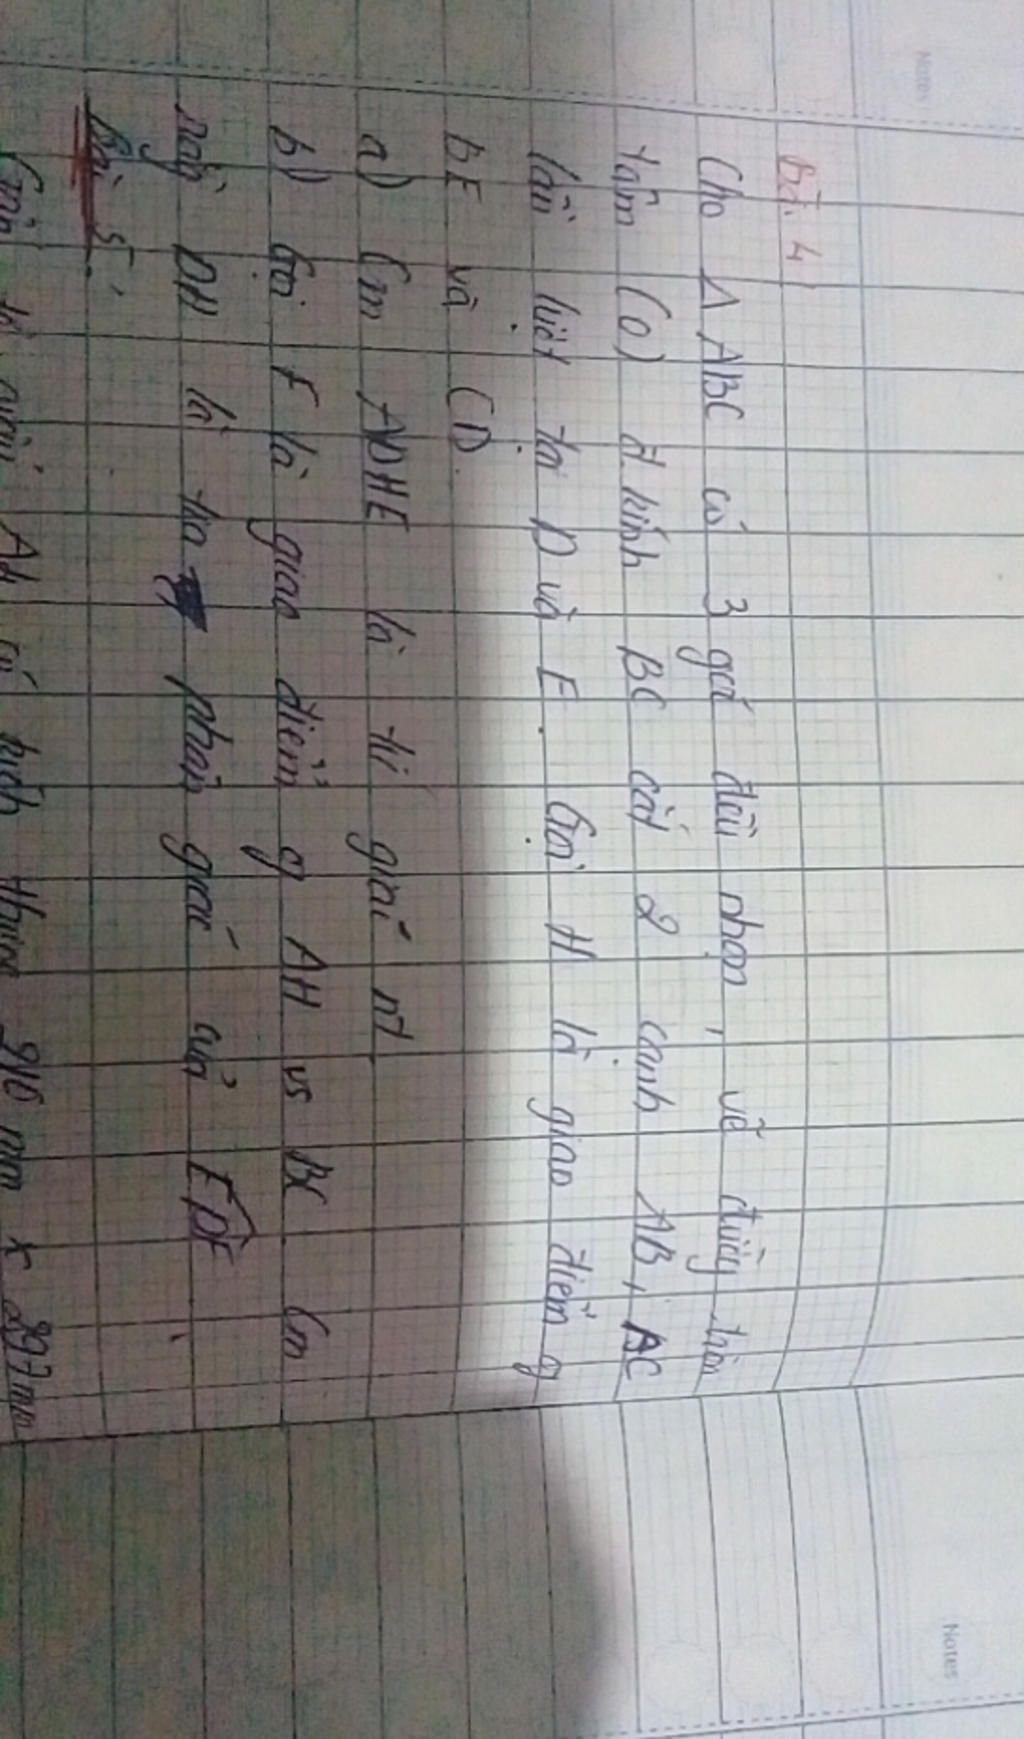 Notes
Notes
Bài 4
Cho Δ ABC có 3 góc đều nhọn, vẽ đường tròn
tâm (O) đ. kính BC cắt 2 cạnh AB, AC
lần lượt tại D và E. Gọi H là giao điểm g
BE và CD.
a) Cm ADHE là tứ giác nt
b) Gọi F là giao điểm g AH vs BC Cm
rằng DH là tia phân giác của EDF
Bài 5:
AH có kích thước 210 mm x 297mm